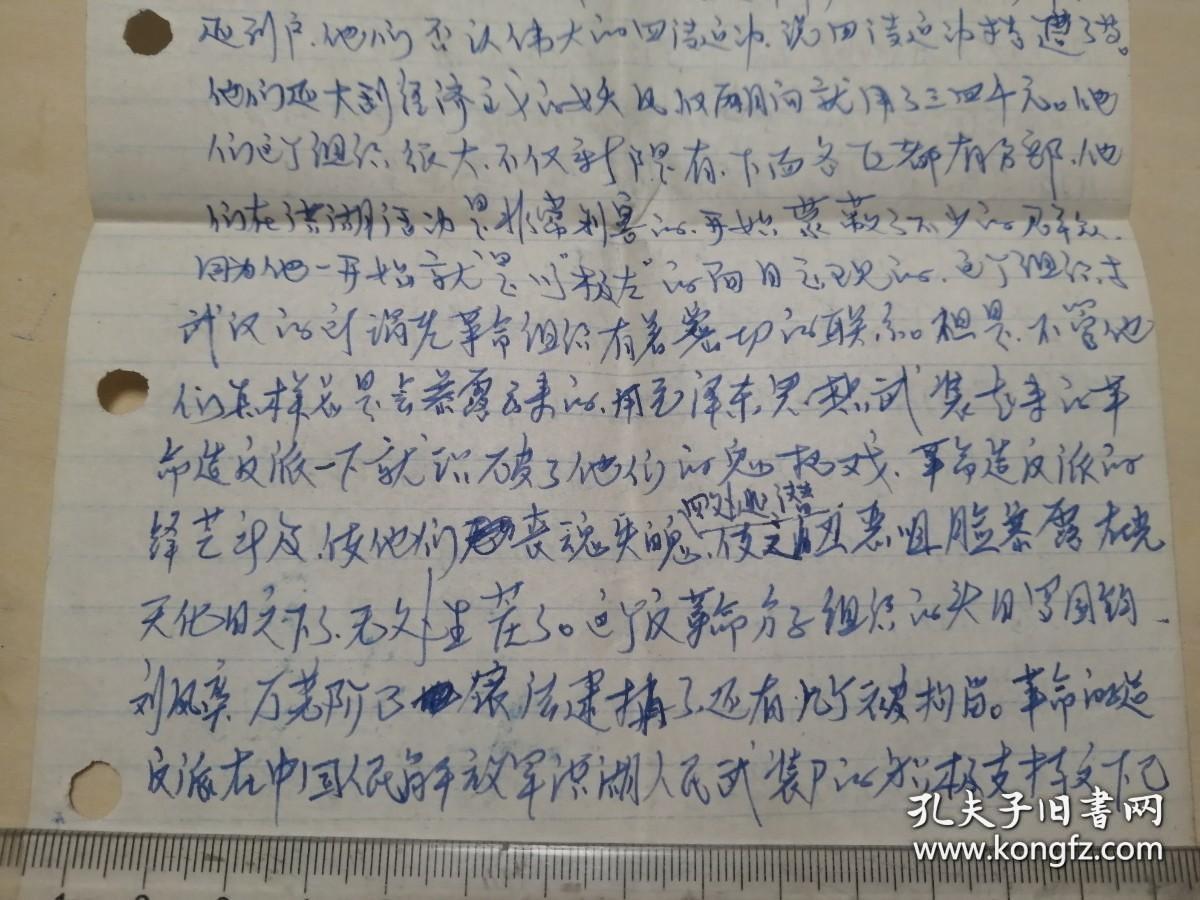 还到户、他们否认伟大的四清运动、说四清运动搞糟了。
他们还大刮经济主义的妖风仅两月间就用了三四千元。他
们这个组织很大、不仅新 有、下面各区都有分部、他
们在洪湖活动是非常利害的、开始蒙蔽了不少的群众、
因为他一开始就是以“极左”的面目出现的、这个组织与
武汉的所谓左革命组织有着密切的联系。但是、不管他
们怎样总是会暴露出来的、用毛泽东思想武装起来的革
命造反派一下就识破了他们的鬼把戏、革命造反派的
锋芒所及、使他们丧魂失魄、四处逃潜使之丑恶咀脸暴露在光
天化日之下了、无处生芒了。这个反革命分子组织的头目 国钧、
刘凤 、万 阶已 依法逮捕了、还有几个被拘留。革命的造
反派在中国人民解放军洪湖人民武装 的积极支持之下已
孔夫子旧书网
www.kongfz.com